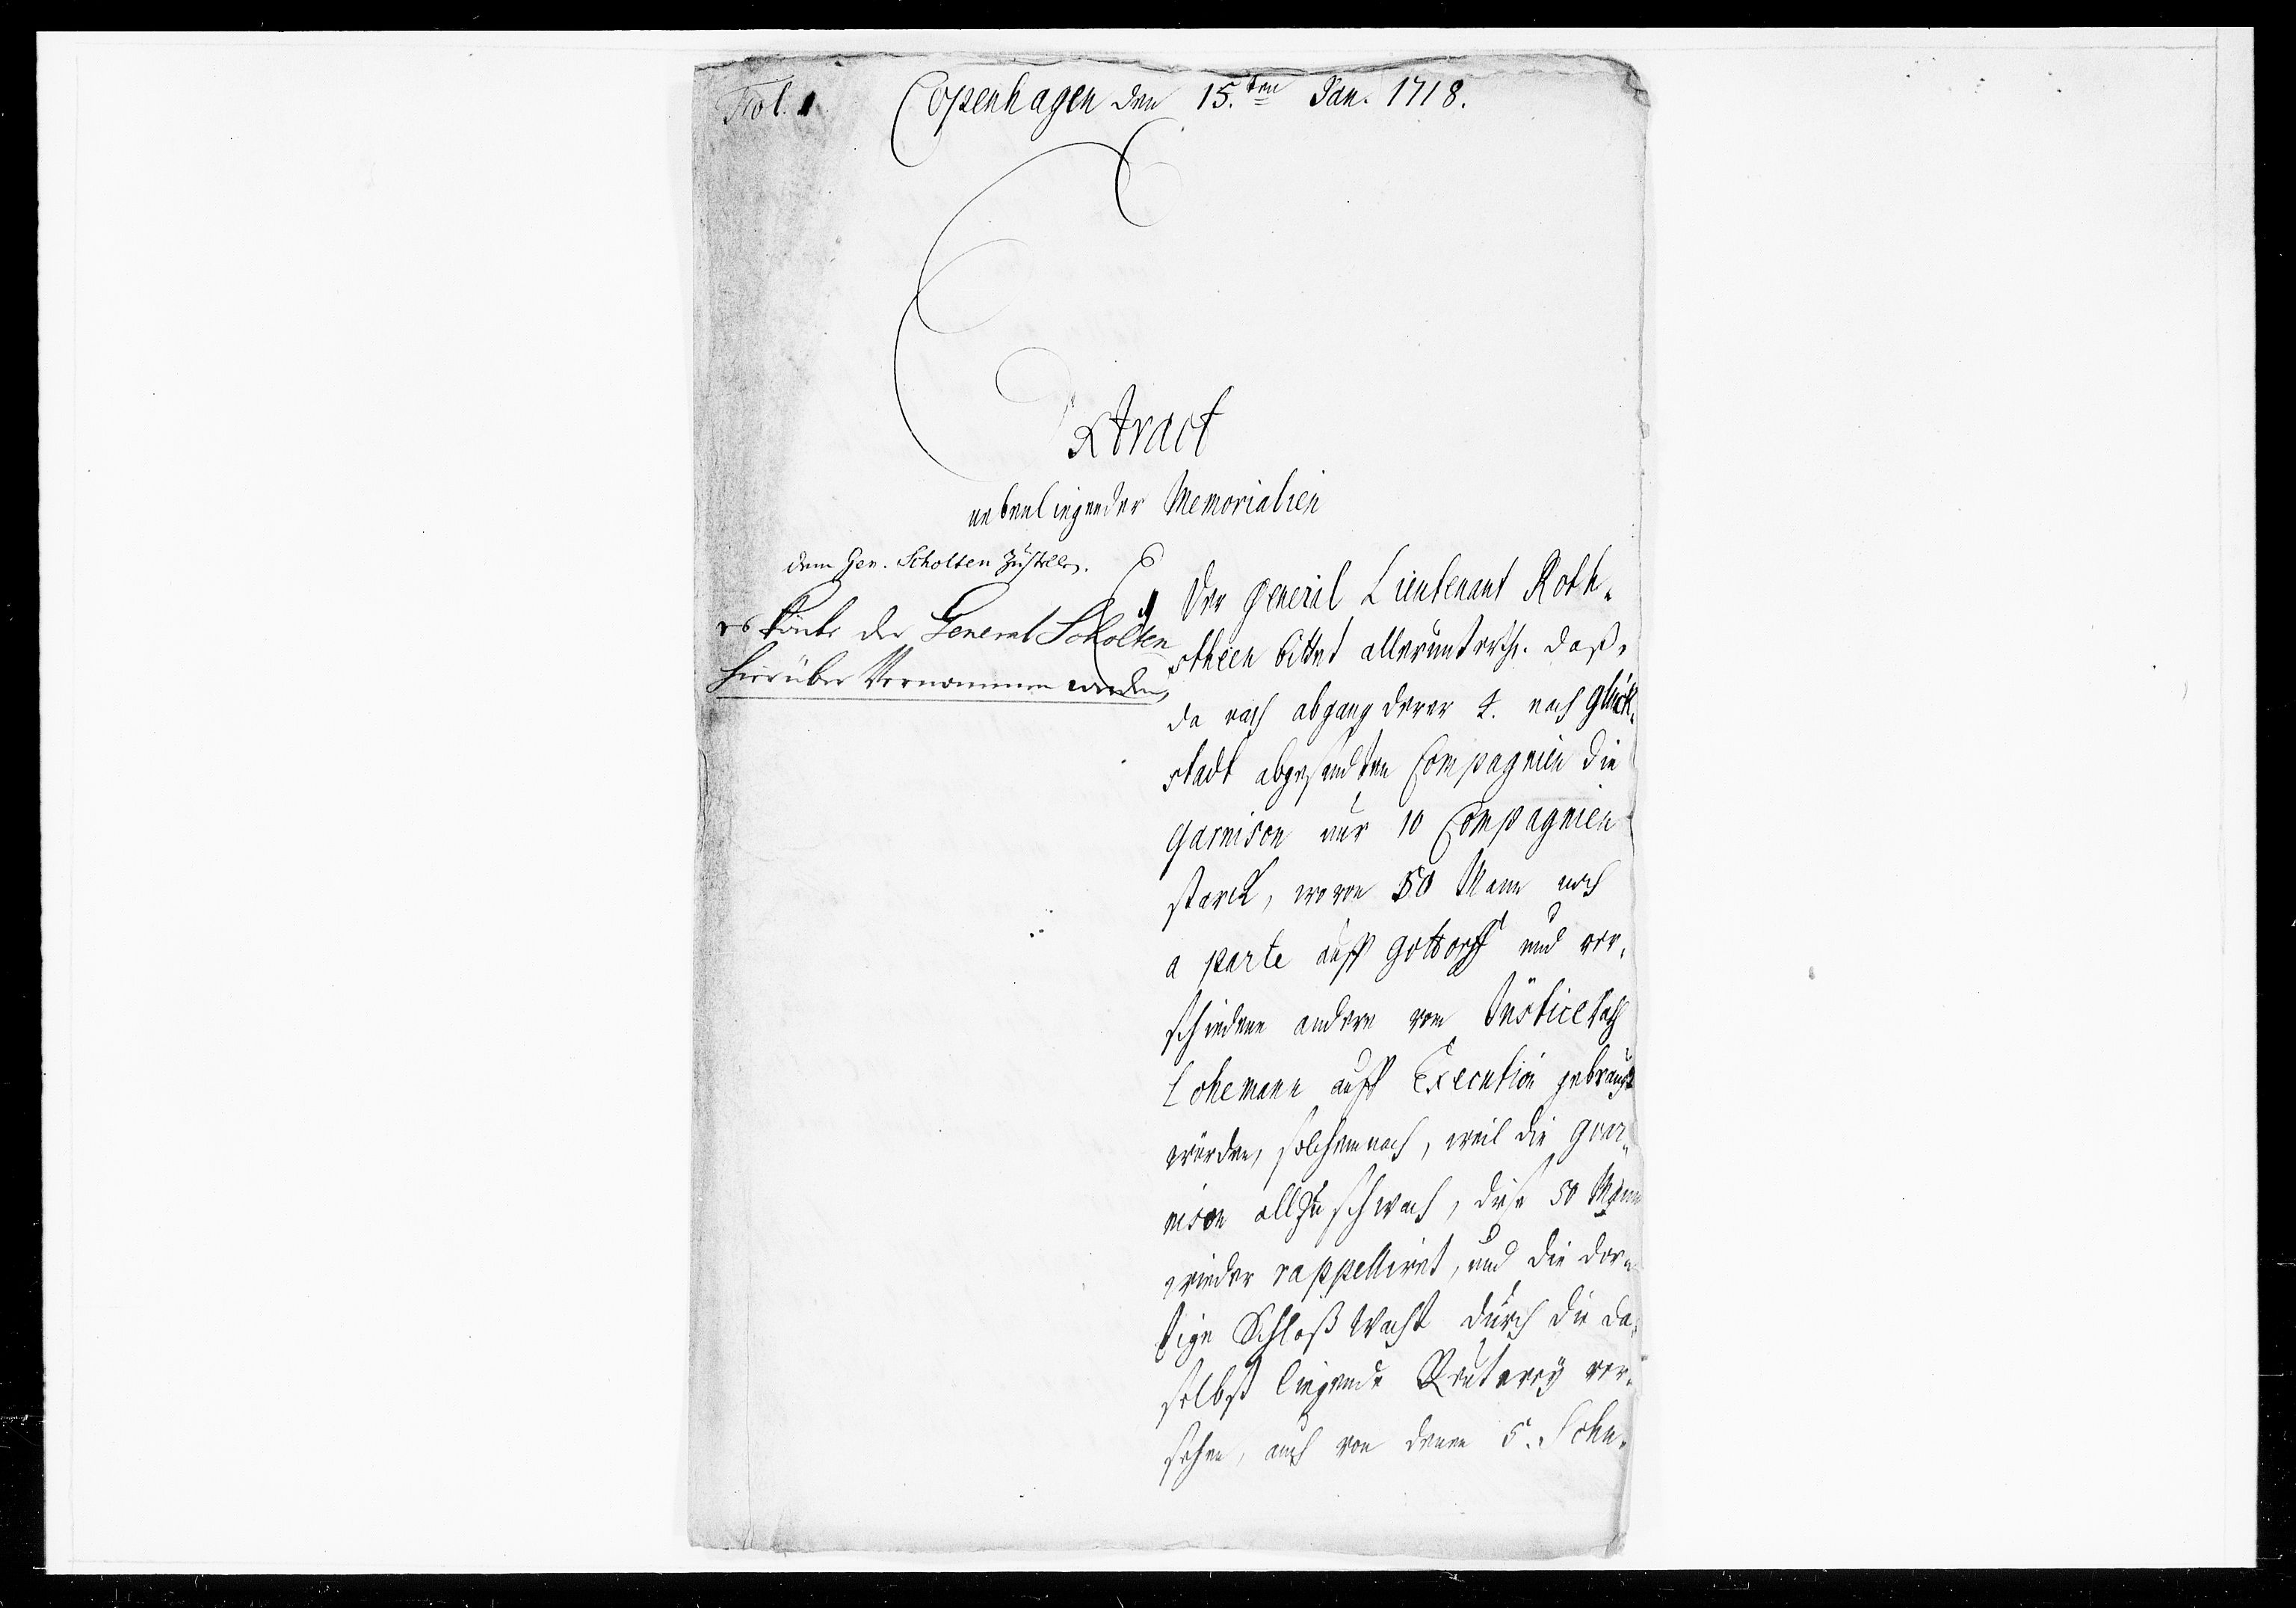 Fol. 1.
Copenhagen den 15.ten Jan. 1718.
Extract
nebenliegender Memorialien
dem Gen. Scholten Zustellen.
es könte der General Scholten
hierüber Vernommen werden,
1
Der General Lieutenant Roth-
steen bittet allerunterth. daß,
da nach abgang derer 2. nach Glück-
stadt abgesandten Compagnien die
Garnison nur 10 Compagnien
starck, wovon 50 Mann noch
a parte auff Gottorff und ver-
schiedene andere vom Justice Rath
Lohemann auff Execution gebraucht
würden, solchemnach, weil die Gar-
nison allzu schwach, diese 50 Mann
wieder rappelliret, und die dor-
tige Schloß Wacht durch die da-
selbst liegende Reuterey ver-
sehen, auch von denen 5.